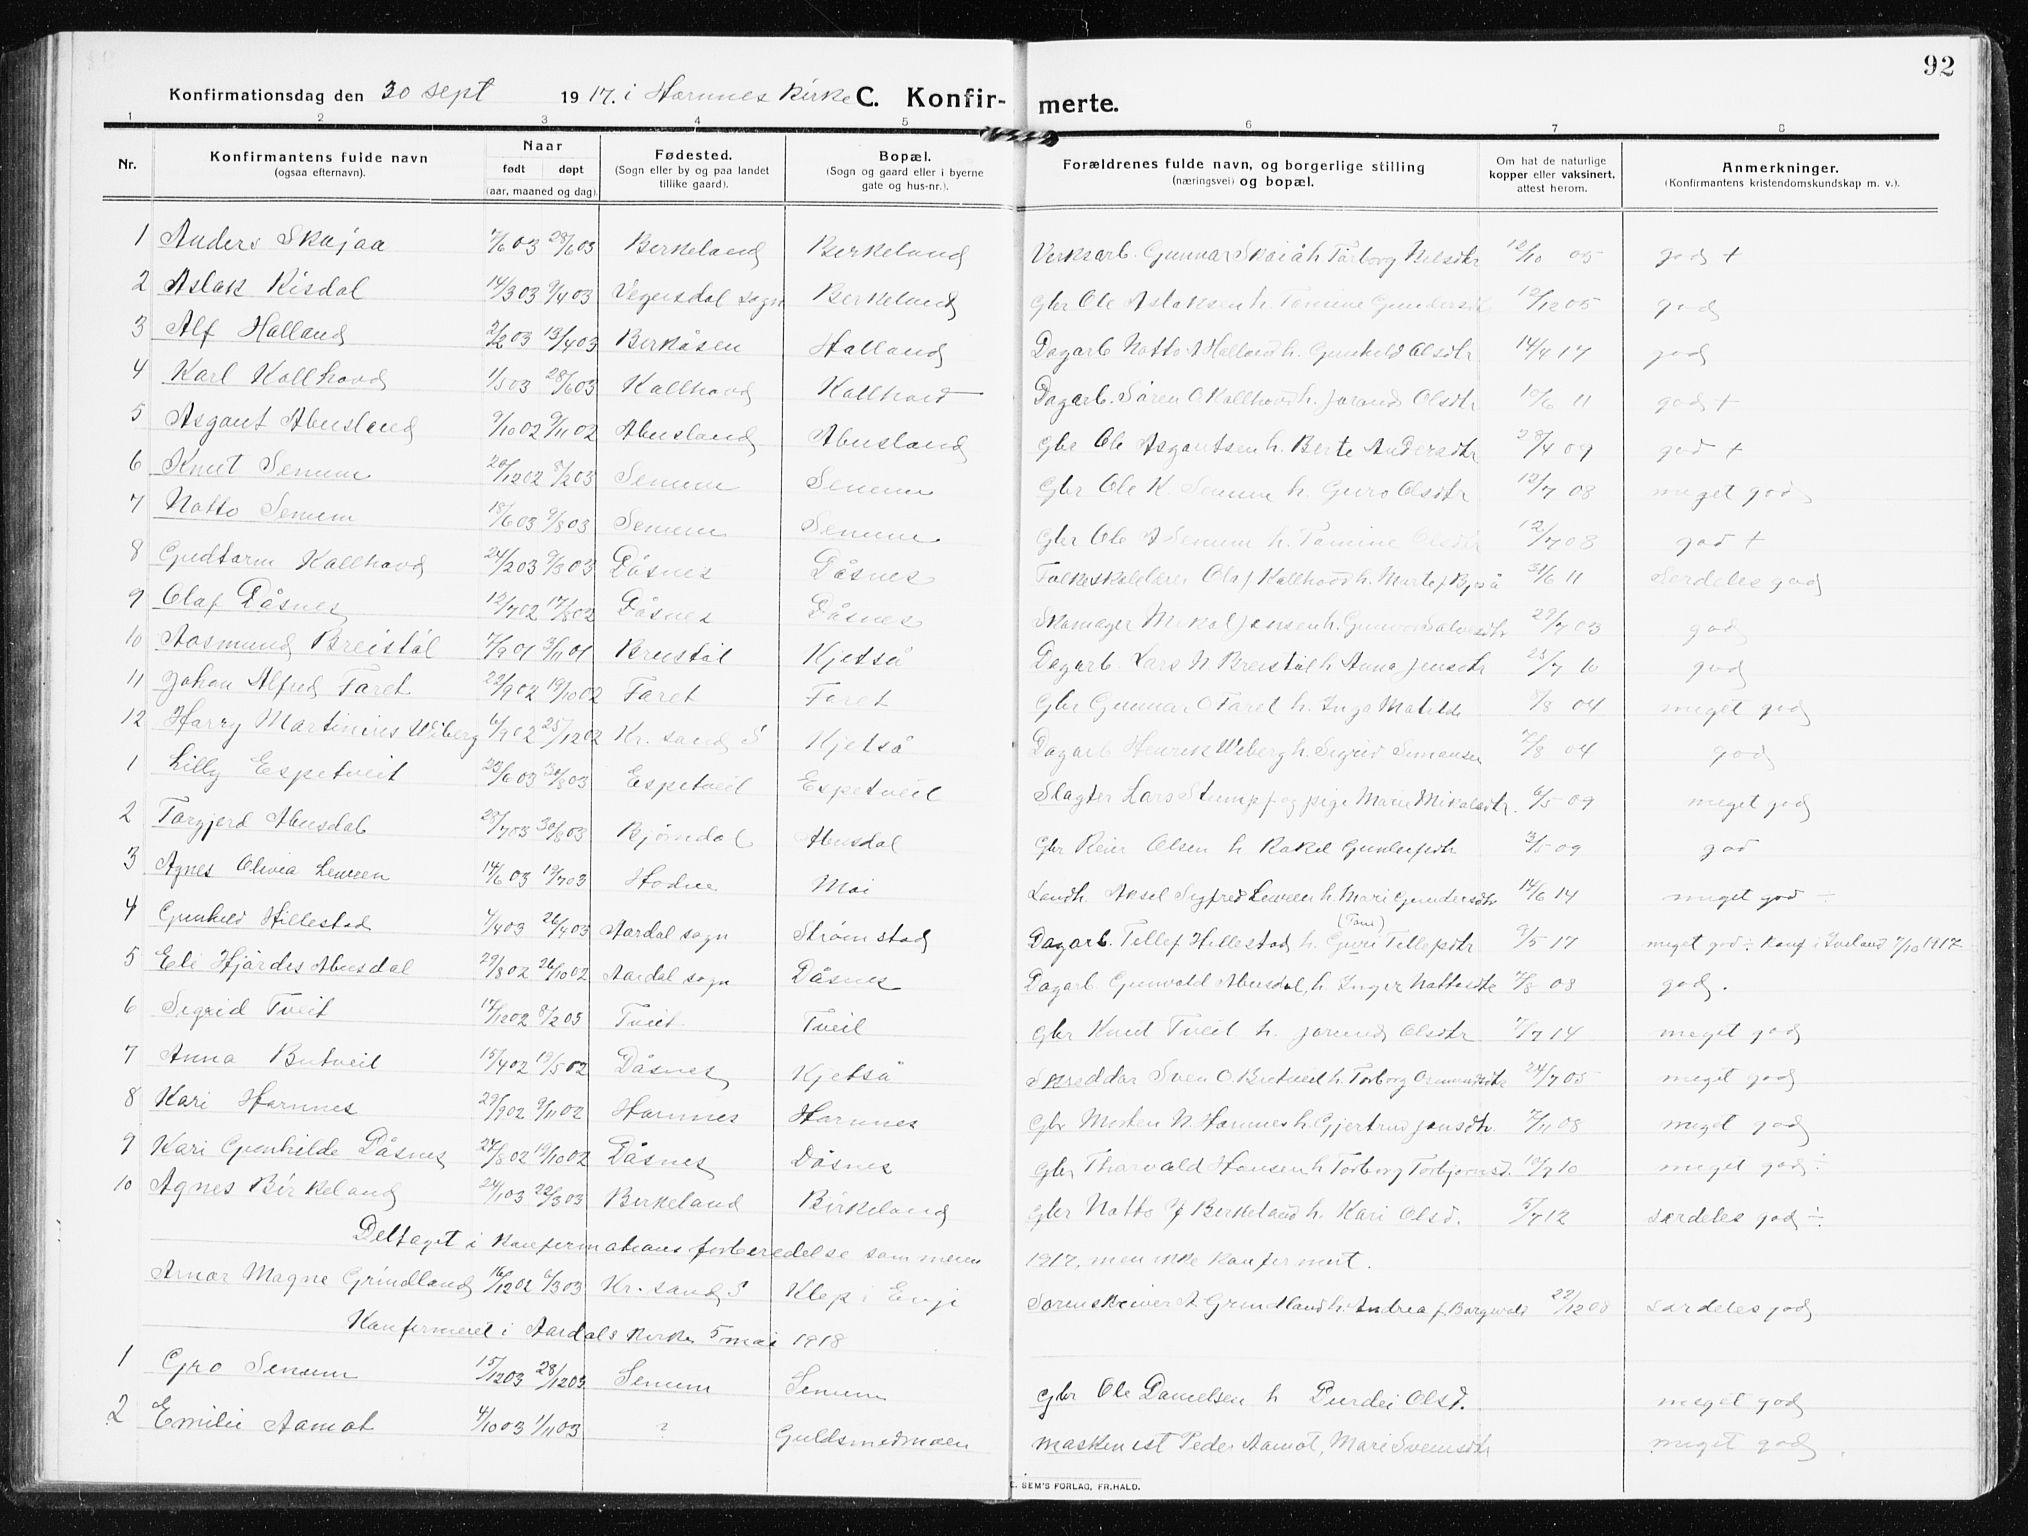 92
Konfirmationsdag den 30 sept 1917. i Hornnes Kirke C. Konfir- merte.
1 2 3 4 5 6 7 8
Nr. Konfirmantens fulde navn (ogsaa efternavn). Naar født døpt (aar, maaned og dag). Fødested. (Sogn eller by og paa landet tillike gaard). Bopæl. (Sogn og gaard eller i byerne gate og hus-nr.). Forældrenes fulde navn, og borgerlige stilling (næringsvei) og bopæl. Om hat de naturlige kopper eller vaksinert, attest herom. Anmerkninger. (Konfirmantens kristendomskundskap m. v.).
1 Anders Skajaa 7/6 03 28/6 03 Birkeland Birkeland Verksarb. Gunnar Skaiå h. Torborg Nilsdtr 12/10 05 god +
2 Aslak Risdal 14/3 03 9/4 03 Vegusdal sogn Birkeland Gbr Ole Aslaksen h. Tomine Gundersdtr 12/12 05 god
3 Alf Halland 2/2 03 13/4 03 Birkåsen Halland Dagarb Notto A Halland h. Gunhild Olsdtr 14/4 17 god
4 Karl Kallhovd 1/5 03 28/6 03 Kallhovd Kallhovd Dagarb. Søren O Kallhovd h. Jorand Olsdtr 10/6 11 god +
5 Asgaut Abusland 9/10 02 9/11 02 Abusland Abusland Gbr Ole Asgautsen h. Berte Andersdtr 28/4 09 god +
6 Knut Senum 20/12 02 8/2 03 Senum Senum Gbr Ole K. Senum h. Guro Olsdtr 12/7 08 meget god
7 Notto Senum 18/6 03 9/8 03 Senum Senum Gbr Ole A Senum h. Tomine Olsdtr 12/7 08 god +
8 Gudtorm Kallhovd 24/2 03 9/3 03 Dåsnes Dåsnes Folkeskolelærer Olaf Kallhovd h. Marte f Byså 31/6 11 Særdeles god
9 Olaf Dåsnes 12/7 02 17/8 02 Dåsnes Dåsnes Skomager Mikal Jensen h. Gunvor Salvesdtr 29/7 03 god
10 Aasmund Breistöl 7/9 01 3/11 01 Breistöl Kjetså Dagarb. Lars N Breistöl h Anna Jensdtr 25/7 10 god
11 Johan Alfred Faret 22/9 02 19/10 02 Faret Faret Gbr Gunnar O Faret h. Inga Matilde 8/8 04 meget god
12 Harry Martinius Wiberg 6/9 02 25/12 02 Kr. sand S Kjetså Dagarb Henrik Wiberg h. Sigrid Simonsen 7/8 04 god
1 Lilly Espetveit 23/6 03 30/8 03 Espetveit Espetveit Slagter Lars Stumpf og pige Marie Mikalsdtr. 6/5 09 meget god
2 Torgjerd Abusdal 28/7 03 30/8 03 Bjørndal Abusdal Gbr Reier Olsen h Rakel Gundersdtr 3/5 09 god
3 Agnes Olivia Leween 14/6 03 19/7 03 Hodne Moi Landh. Aksel Sigfred Leween h. Mari Gundersdtr 14/6 14 meget god ÷
4 Gunhild Hillestad 7/4 03 26/4 03 Aardal sogn Strømstad Dagarb. Tellef Hillestad h. Guri (Tone) Tellefsdtr 9/5 17 meget god ÷ Konf i Iveland 7/10 1917
5 Eli Hjördis Abusdal 29/8 02 26/10 02 Aardal sogn Dåsnes Dagarb Gunvald Abusdal, h Inger Nottosdtr 7/8 08 god.
6 Sigrid Tveit 17/12 02 8/2 03 Tveit Tveit Gbr Knut Tveit h. Jorund Olsdtr 7/7 14 meget god
7 Anna Butveit 15/4 02 19/5 02 Dåsnes Kjetså Skreddar Sven O. Butveit h. Torborg Osmundsdtr 24/7 05 meget god
8 Kari Hornnes 29/9 02 9/11 02 Hornnes Hornnes Gbr Morten N. Hornnes h. Gjertrud Jonsdtr. 7/11 08 meget god
9 Kari Gunhilde Dåsnes 24/8 02 19/10 02 Dåsnes Dåsnes Gbr Thorvald Hansen h Torborg Torbjørnsd. 10/7 10 meget god ÷
10 Agnes Birkeland 24/1 03 22/3 03 Birkeland Birkeland Gbr Notto J Birkeland h. Kari Olsd. 5/7 12 særdeles god ÷
Deltaget i konfirmations forberedelse sommeren 1917, men ikke konfirmert.
Arnor Magne Grindland 16/12 02 6/3 03 Kr. sand S Klep i Evje Sorenskriver A Grindland h. Andrea f. Borgvald 22/12 08 særdeles god
Konfirmeret i Aardals kirke 5 mai 1918
1 Gro Senum 15/12 03 28/12 03 Senum Senum Gbr Ole Danielsen h Durdei Olsd. meget god
2 Emilie Aamot 4/10 03 1/11 03 ? Guldsmedmoen maskenist Peder Aamot, Mari Svensdtr meget god
C. SEM'S FORLAG, FR.HALD.